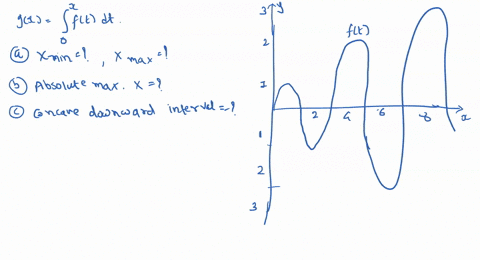 g(x) = ∫₀ˣ f(t) dt.
(a) x min = ? , x max = ?
(b) Absolute max. x = ?
(c) concave downward interval = ?
y
3
2
1
f(t)
2
4
6
8
x
1
2
3